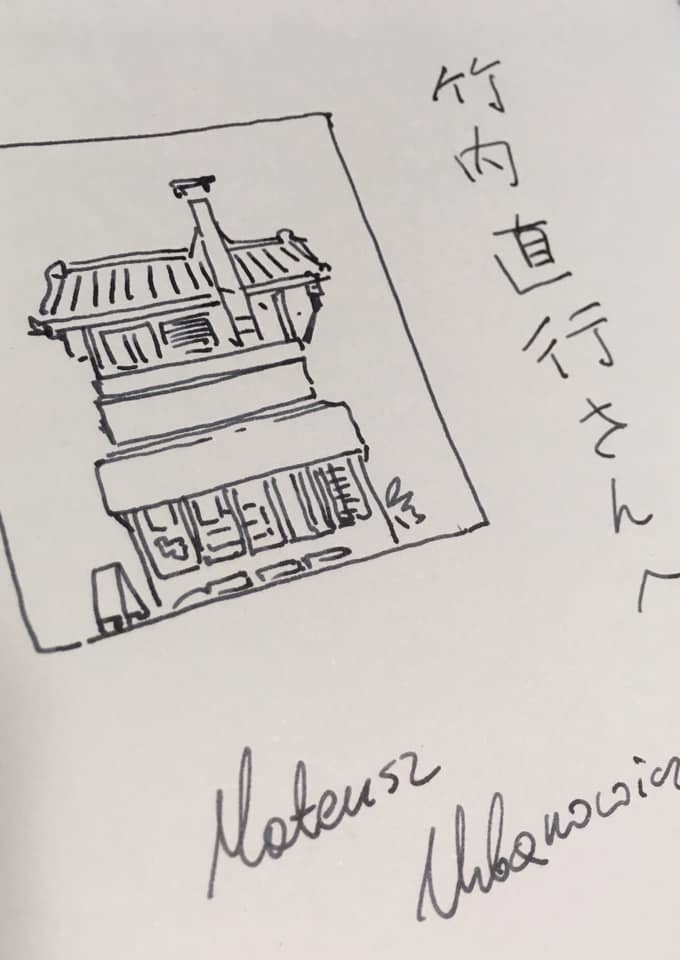 竹内直行さんへ
Mateusz
Urbanowicz